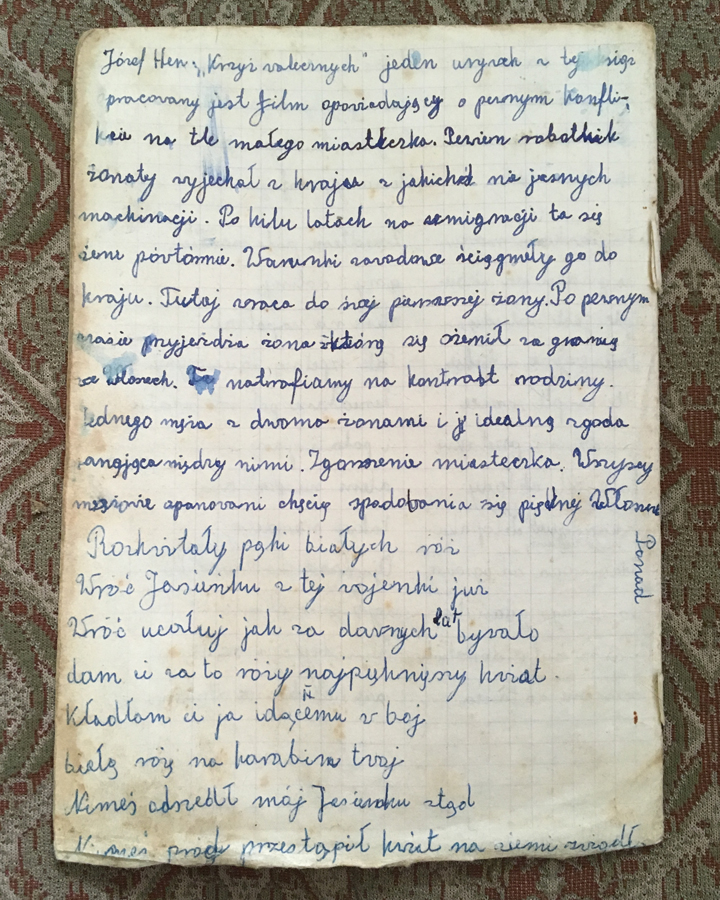 Józef Hen: „Krzyż walecznych" jeden
pracowany jest film opowiadający o pewnym konfli-
kcie na tle małego miasteczka. Pewien robotnik
żonaty wyjechał z kraju z jakichś nie jasnych
machinacji. Po kilu latach na emigracji ta się
żeni powtórnie. Warunki zawodowe ściągnęły go do
kraju. Tutaj wraca do swej pierwszej żony. Po pewnym
czasie przyjeżdża żona którą się ożenił za granicą
we Włoszech. natrafiamy na kontrast rodziny.
Jednego męża z dwoma żonami i idealną zgoda
panująca między nimi. Zgorszenie miasteczka. Wszyscy
mężowie opanowani chęcią spodobania się pięknej Włoszce
Ponad
Rozkwitały pąki białych róż
Wróć Jasieńku z tej wojenki już
Wróć ucołuj jak za dawnych lat bywało
dam ci za to róży najpiękniejszy kwiat.
Kładłam ci ja idącemu w boj
białą różę na karabin twój
Nimeś odszedł mój Jasieńku stąd
Nimeś próg przestąpił kwiat na ziemi zwiądł